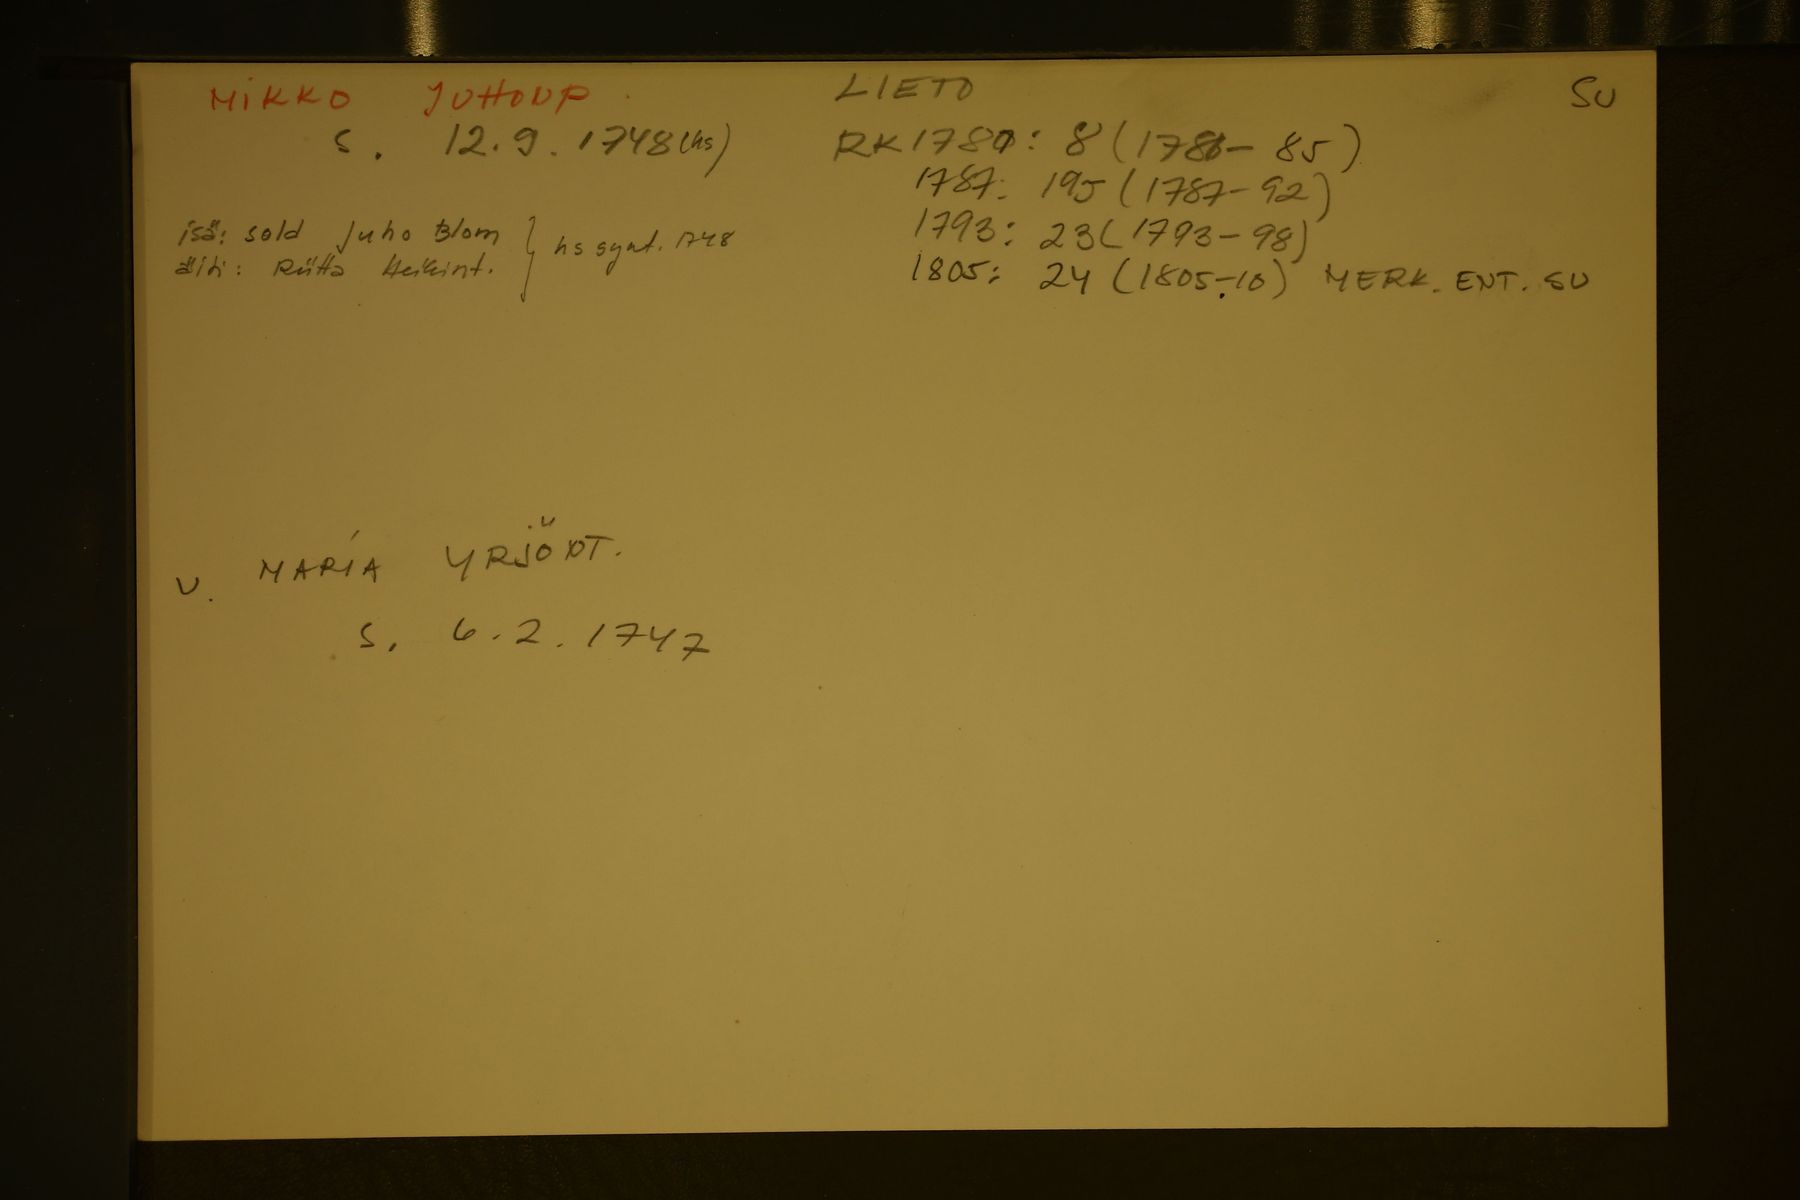 MIKKO JUHONP.
s. 12.9.1748 (hs)
isä: sold Juho Blom } hs synt. 1748
äiti: Riitta Heikint.
v. MARIA YRJÖNT.
s. 6.2.1747
LIETO
RK 1780: 8 (1780-85)
1787: 195 (1787-92)
1793: 23 (1793-98)
1805: 24 (1805-10) MERK. ENT. SU
SU